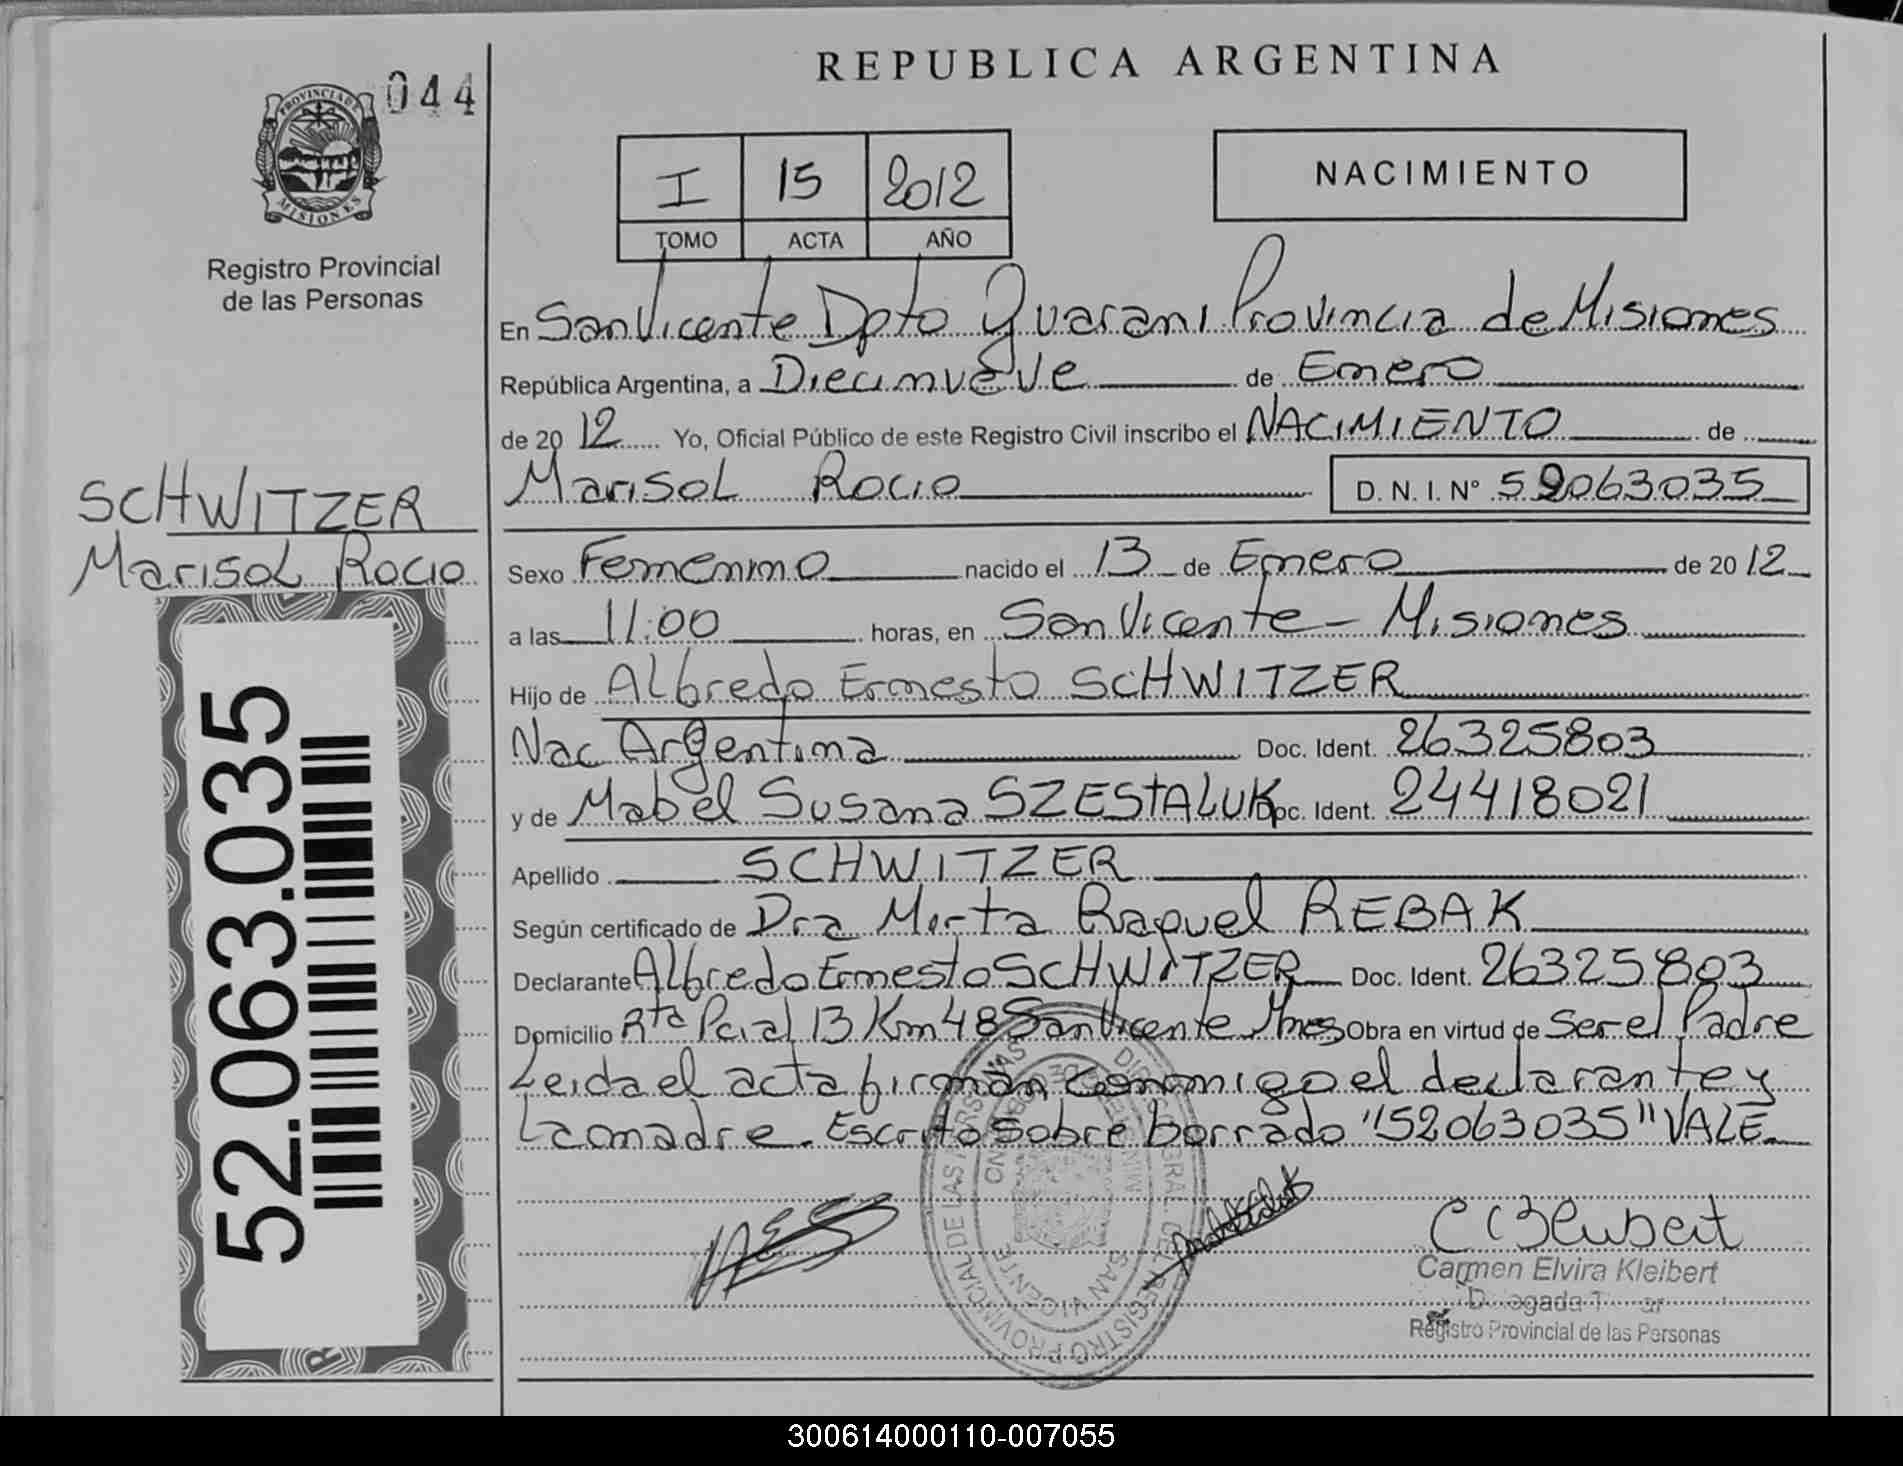 REPUBLICA ARGENTINA
044
PROVINCIA DE
MISIONES
Registro Provincial
de las Personas
I 15 2012
TOMO ACTA AÑO
NACIMIENTO
En San Vicente Dpto Guarani Provincia de Misiones
República Argentina, a Diecinueve de Enero
de 20 12 Yo, Oficial Público de este Registro Civil inscribo el NACIMIENTO de
Marisol Rocio D. N. I. N° 52063035
SCHWITZER
Marisol Rocio
Sexo Femenino nacido el 13 de Enero de 20 12
a las 11:00 horas, en San Vicente - Misiones
Hijo de Alfredo Ernesto SCHWITZER
Nac Argentina Doc. Ident. 26325803
y de Mabel Susana SZESTALUK Doc. Ident. 24418021
Apellido SCHWITZER
Según certificado de Dra Mirta Raquel REBAK
Declarante Alfredo Ernesto SCHWITZER Doc. Ident. 26325803
Domicilio Rta Pcial 13 Km 48 San Vicente Mnes Obra en virtud de Ser el Padre
Leida el acta firman conmigo el declarante y
La madre. Escrito Sobre borrado "52063035" VALE
52.063.035
REGISTRO PROVINCIAL DE LAS PERSONAS
SAN VICENTE
Carmen Elvira Kleibert
Registro Provincial de las Personas
300614000110-007055